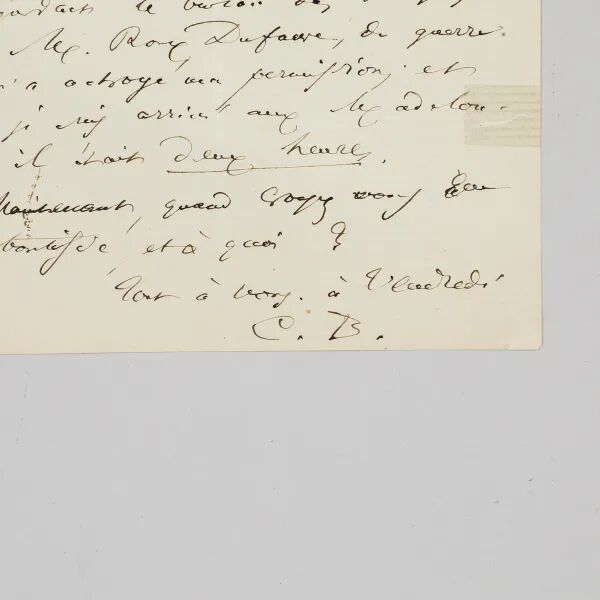 gardant le
M. Roux Dufaure, de guerre
m'a octroyé ma permission, et
je suis arrivé aux Madelon-
il était deux heures.
Maintenant, quand croyez vous être
et à quoi ?
Tout à vous. à Vendredi
C. B.